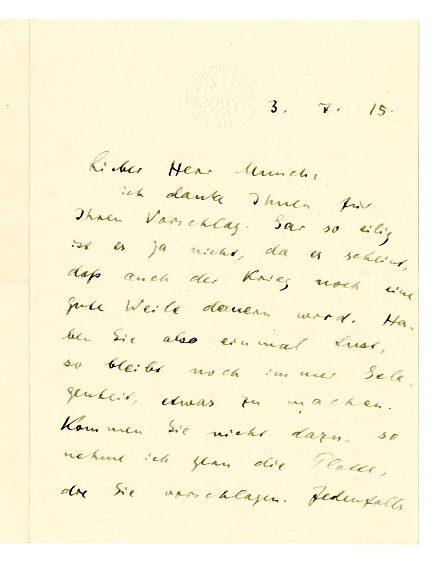 3. 7. 15.
Lieber Herr Munch,
ich danke Ihnen für
Ihren Vorschlag. Gar so eilig
ist es ja nicht, da es scheint,
daß auch der Krieg noch eine
gute Weile dauern wird. Ha-
ben Sie also einmal Lust,
so bleibt noch immer Gele-
genheit, etwas zu machen.
Kommen Sie nicht dazu, so
nehme ich gern die Platte,
die Sie vorschlagen. Jedenfalls